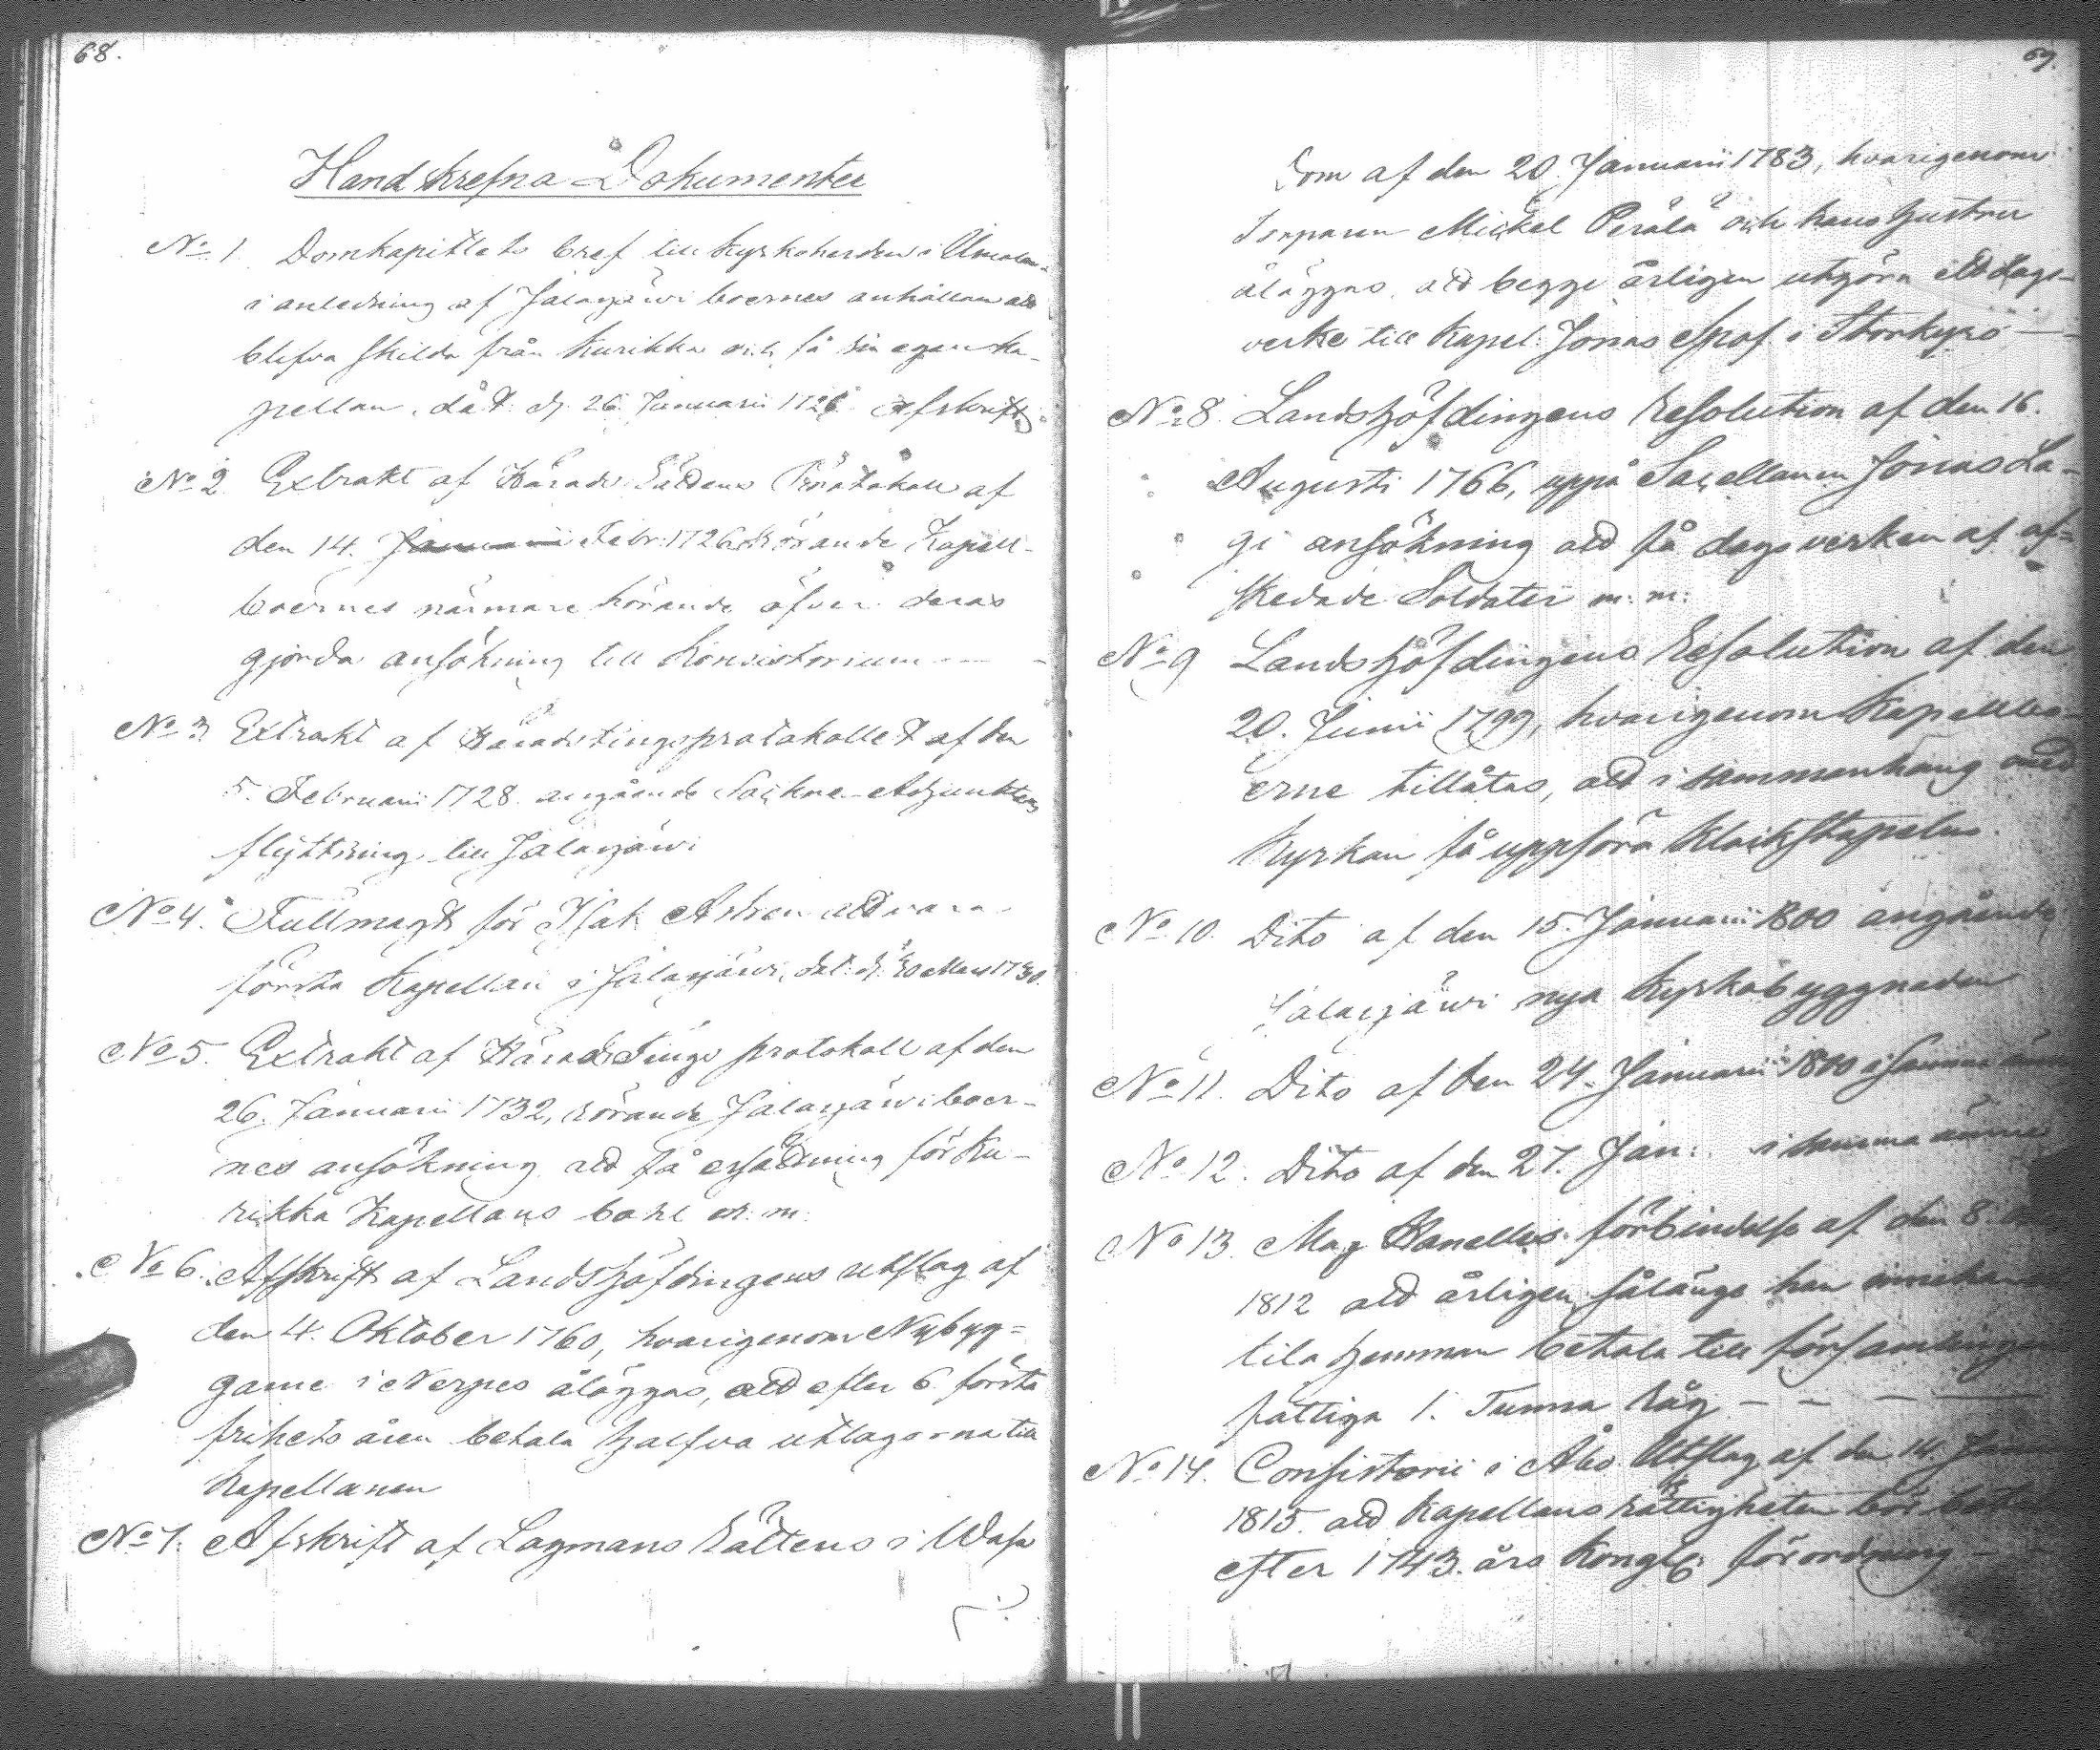 68.
Handskrefna Dokumenter
No 1. Domkapitlets bref till Kyrkoherden i Ilmola
i anledning af Jalasjäwi boernes anhållan att
blifva skilda från Kurikka och få sin egen Ka-
pellan, dåt. d. 26. Januarii 1726. Afskrift
No 2. Extrakt af Härads Rättens Protokoll af
den 14. Januarii Febr. 1726 rörande Kapell-
boernes närmare hörande öfver deras
gjorda ansökning till Konsistorium
No 3. Extrakt af Häradstingsprotokollet af den
5. Februarii 1728. angående Sockne-Adjunktens
flyttning till Jalasjäwi
No 4. Fullmagt för Isak att vara
första Kapellan i Jalasjäwi, dat. d. 30 1730.
No 5. Extrakt af Härads Tings protokoll af den
26. Januarii 1732, rörande Jalasjäwi boer-
nes ansökning att få ersättning för Ku-
rikka Kapellans bohl m. m.
No 6. Afskrift af Landshöfdingens utslag af
den 4. Oktober 1760, hvarigenom Nybyg=
garne i Nerpes åläggas, att efter 6 första
frihets åren betala halfva utlagorna till
Kapellanen
No 7. Afskrift af Lagmans Rättens i Wasa
69.
Dom af den 20. Januarii 1783, hvarigenom
Torparen Mickel Perälä och hans hustru
åläggas, att begge årligen utgöra ett dags-
verke till Kapel. Jonas i Storkyrö
No 8. Landshöfdingens Resolution af den 16.
Augusti 1766, uppå Sacellanen Jonas La-
gi ansökning att få dagsverken af af=
skedade Soldater m. m.
No 9 Landshöfdingens Resolution af den
20. Junii 1799, hvarigenom Kapellbo-
erne tillåtas, att i sammenhang med
Kyrkan få uppföra Klockstapelen
No 10. Dito af den 15. Januarii 1800 angående
Jalasjäwi nya Kyrkobyggnaden
No 11. Dito af den 24. Januarii 1800 i samma
No 12. Dito af den 27. Jan: i samma ämne
No 13. Mag Hanelles förbindelse af den 8.
1812 att årligen, sålänge han
tila hemman betala till församlingens
fattiga 1. Tunna Råg
No 14. Consistorii i Åbo Utslag af den 14.
1815. att Kapellans rättigheten bör
efter 1743. års Kongl. förordning